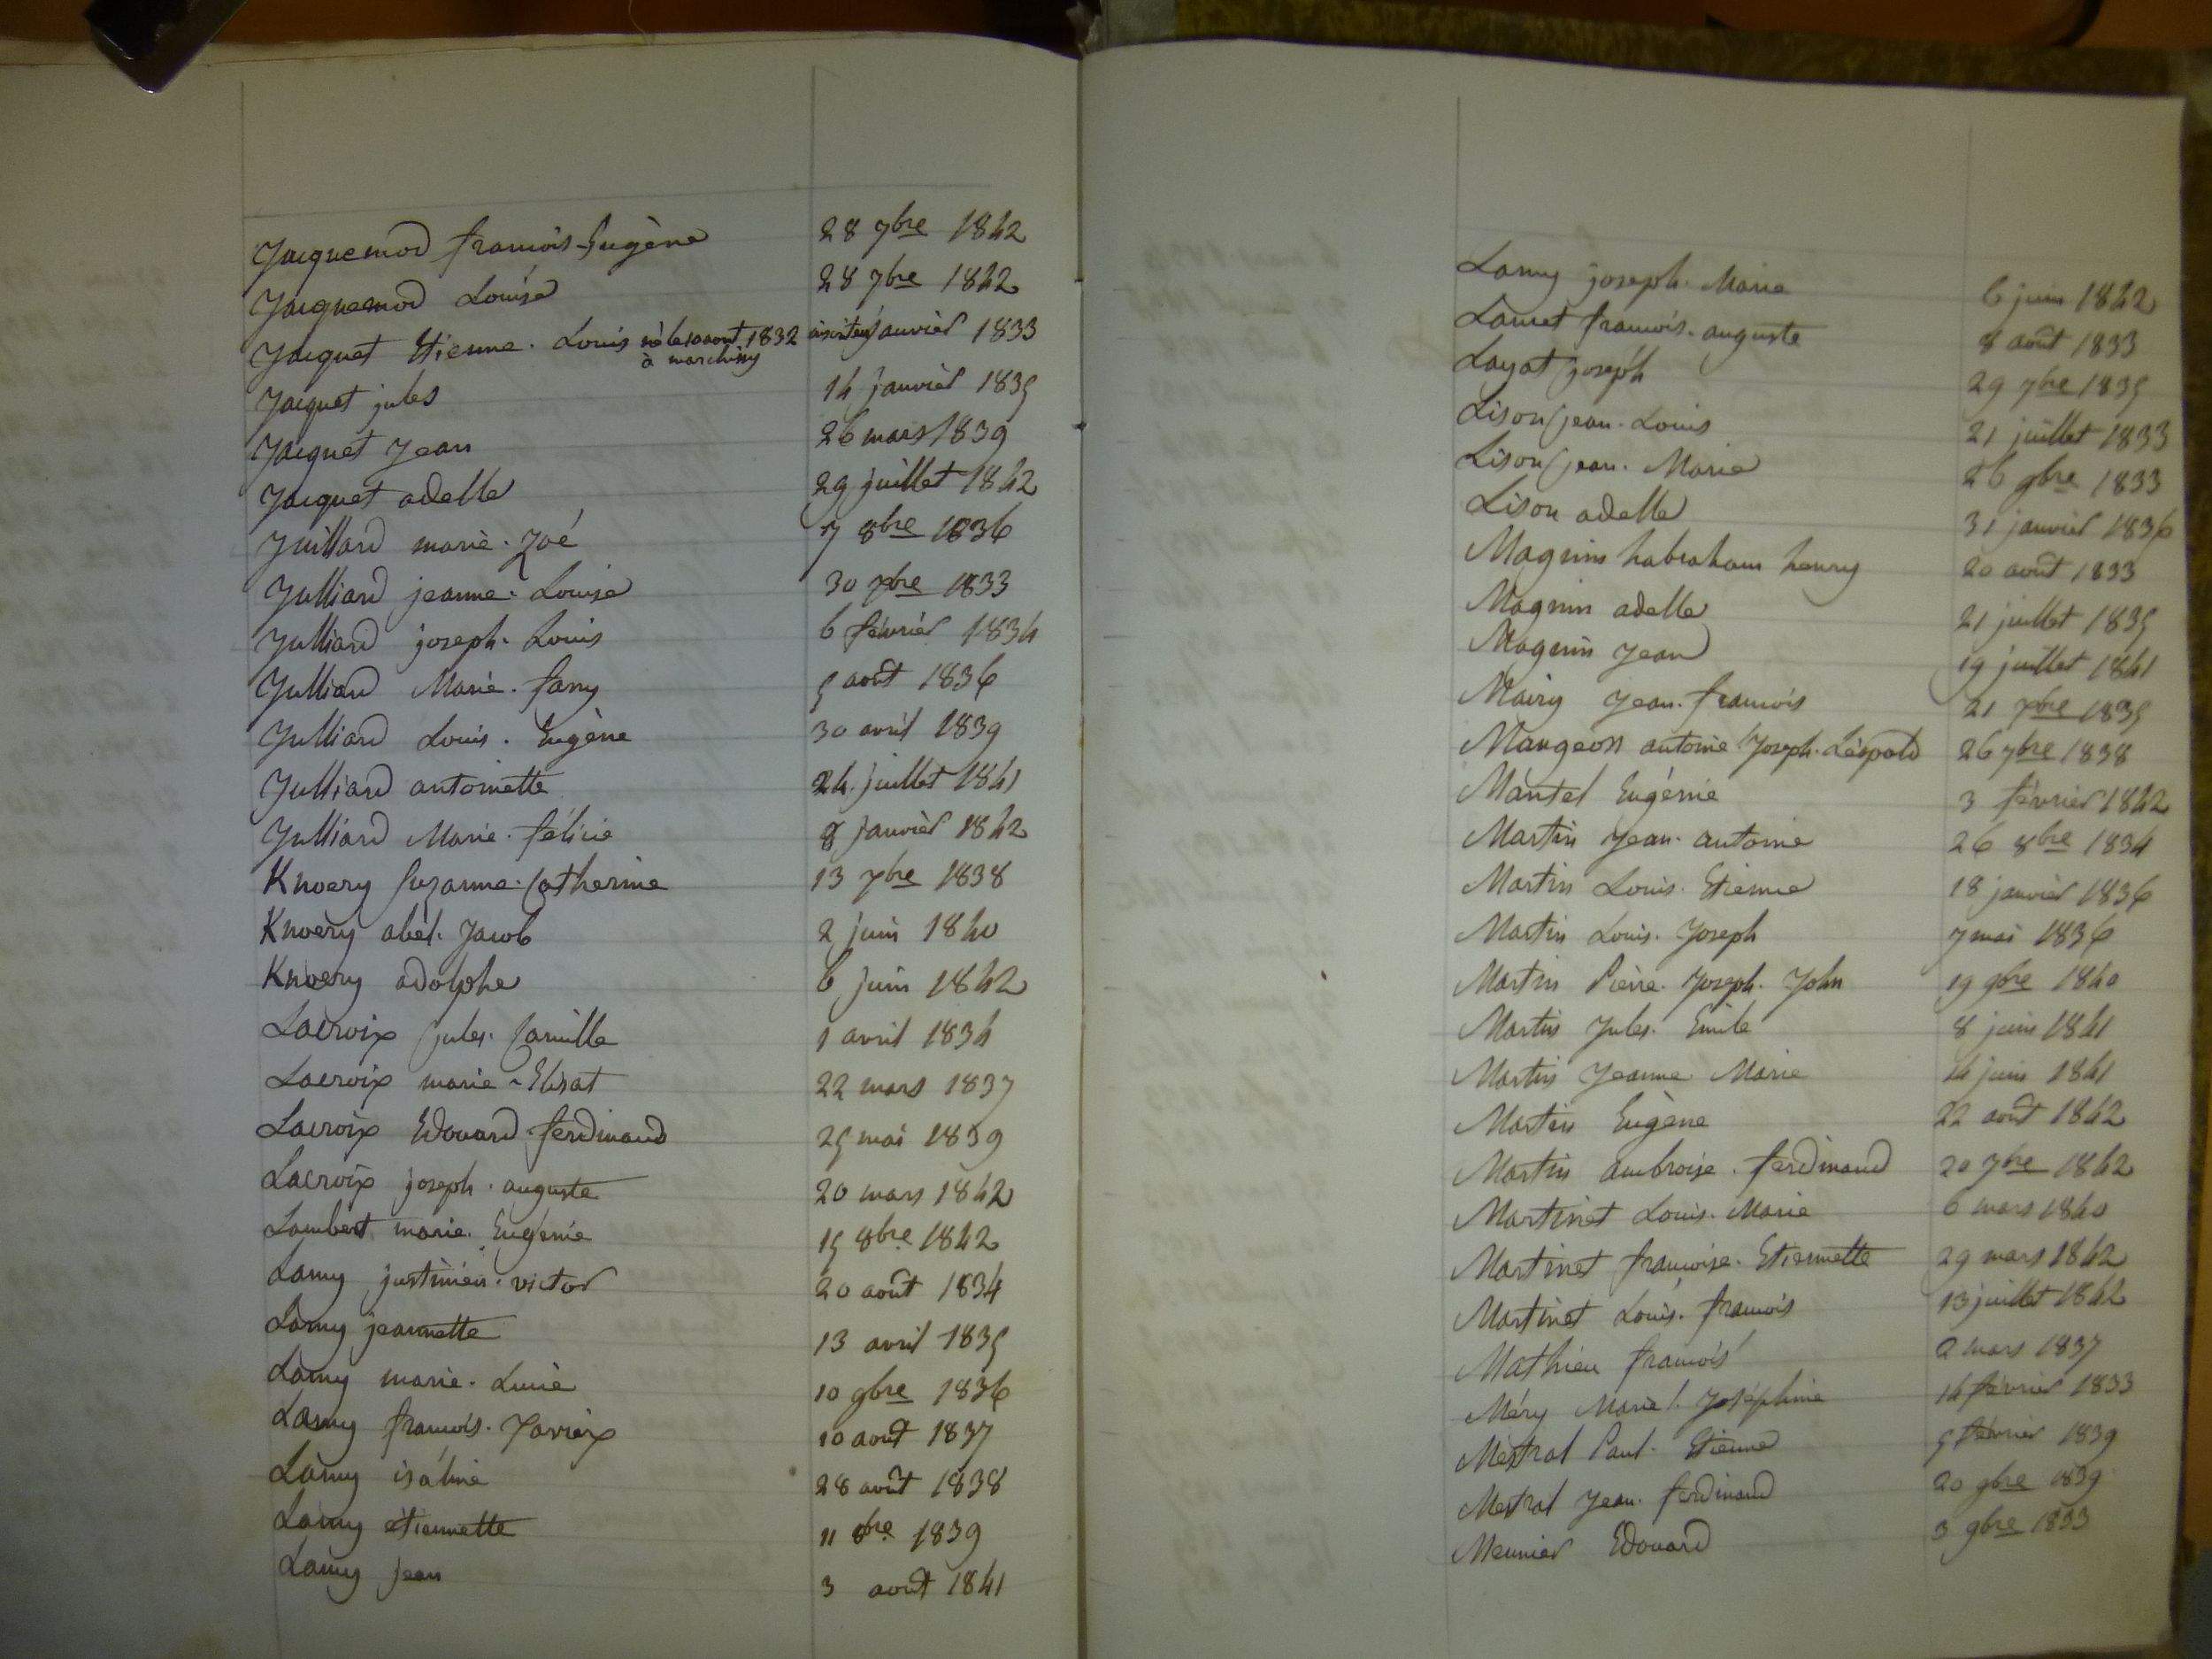 Jacquemod françois-Eugène 28 7bre 1842
Jacquemod Louise 28 7bre 1842
Jacquet Etienne. Louis né le 10 aout 1832 à marchissy janvier 1833
Jacquet jules 14 janvier 1835
Jacquet Jean 26 mars 1839
Jacquet adelle 29 juillet 1842
Juillard marie. Zoé 7 8bre 1836
Julliard jeanne. Louise 30 1833
Julliard joseph. Louis 6 février 1834
Julliard Marie. fany 5 août 1836
Julliard Louis. Eugène 30 avril 1839
Julliard antoinette 24. juillet 1841
Julliard Marie. félicie 8 janvier 1842
Knoery Suzanne. Catherine 13 7bre 1838
Knoery abel. Jacob 2 juin 1840
Knoery adolphe 6 juin 1842
Lacroix jules. Camille 1 avril 1834
Lacroix marie-Elisat 22 mars 1837
Lacroix Edouard. ferdinand 25 mai 1839
Lacroix joseph. auguste 20 mars 1842
Lambert marie. Eugénie 15 8bre 1842
Lamy justinien. victor 20 août 1834
Lamy jeannette 13 avril 1835
Lamy marie. Lucie 10 9bre 1836
Lamy françois. Xavier 10 aout 1837
Lamy isaline 28 août 1838
Lamy étiennette 11 8bre 1839
Lamy jean 3 août 1841
Lamy joseph. Marie 6 juin 1842
Lauret françois. auguste 8 août 1833
Layat joseph 29 7bre 1835
Lison jean. Louis 21 juillet 1833
Lison jean. Marie 26 9bre 1833
Lison adelle 31 janvier 1836
Magnin habraham henry 20 août 1833
Magnin adelle 21 juillet 1835
Magnin Jean 19 juillet 1841
Mairy Jean. françois 21 1835
Maugeon antoine Joseph. Léopold 26 7bre 1838
Mantel Eugénie 3 février 1842
Martin Jean. antoine 26 8bre 1834
Martin Louis. Etienne 18 janvier 1836
Martin Louis. Joseph 7 mai 1836
Martin Pierre. Joseph. John 19 9bre 1840
Martin Jules. Emile 8 juin 1841
Martin Jeanne Marie 14 juin 1841
Martin Eugène 22 août 1842
Martin ambroise. ferdinand 20 7bre 1842
Martinet Louis. Marie 6 mars 1840
Martinet françoise. Etiennette 29 mars 1842
Martinet Louis. françois 13 juillet 1842
Mathieu françois 2 mars 1837
Méry Marie. Joséphine 14 février 1833
Mestral Paul. Etienne 5 février 1839
Mestral Jean. ferdinand 20 9bre 1839
Meunier Edouard 3 9bre 1833